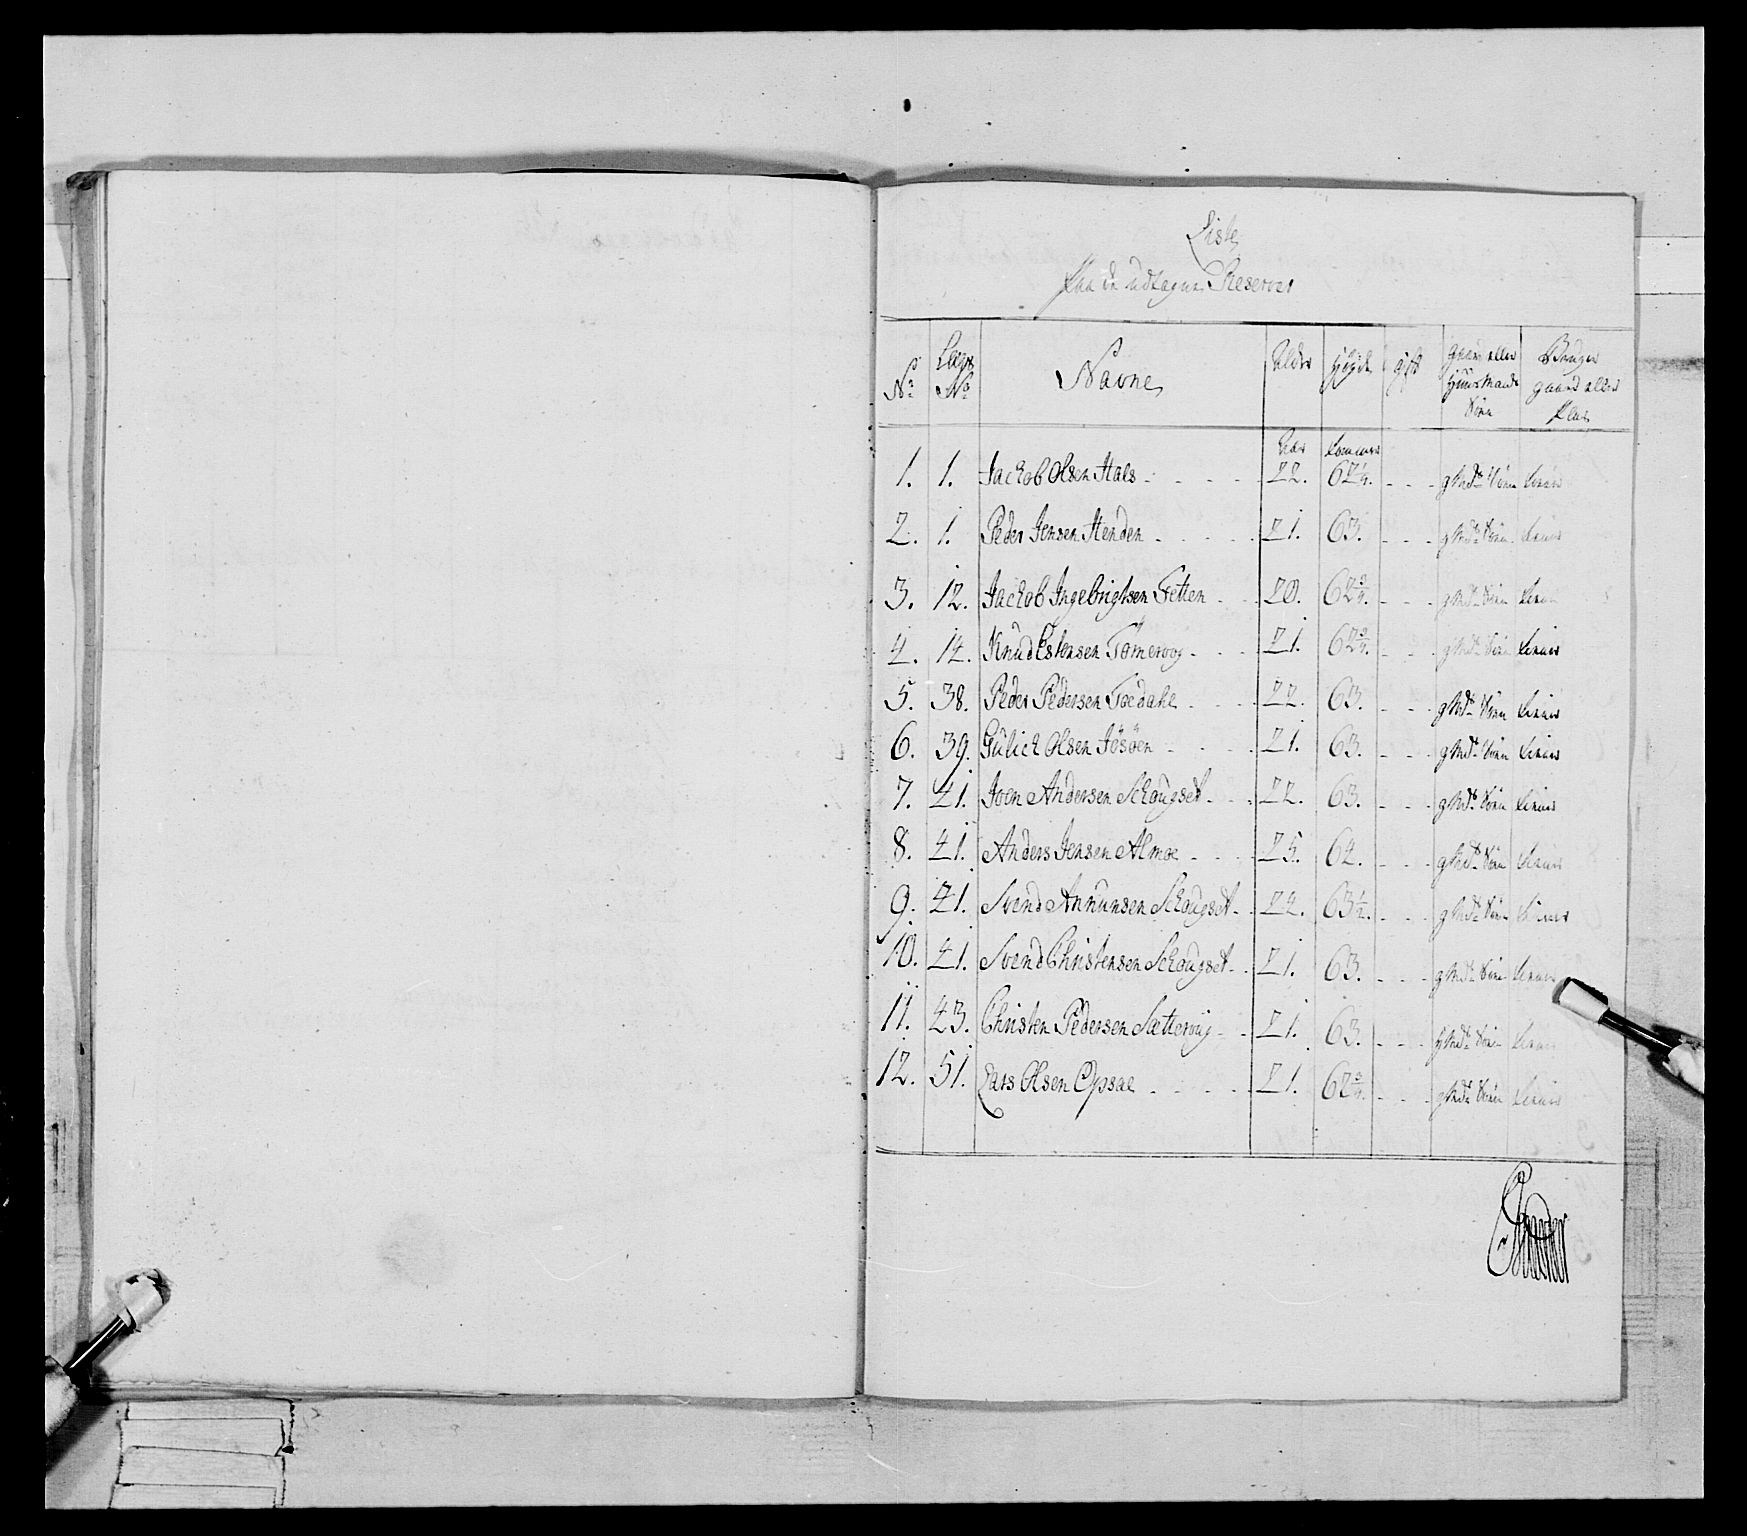 Liste
Paa de udtagne Reserver
No Lægs No Navne Alder Høyde gift gaard eller Huusmands Søn Bruger gaard eller Plads
Aar Tommer
1. 1. Jackob Olsen Hals 22. 62 1/4. gMds Søn
2. 1. Peder Jensen Henden 21. 63. gMds Søn
3. 12. Jackob Ingebrigtsen Fetten 20. 62 3/4. gMds Søn
4. 14. Knud Estensen Tømervog 21. 62 3/4. gMds Søn
5. 38. Peder Pedersen Foedahl 22. 63. gMds Søn
6. 39. Gulick Olsen Jøsøen 21. 63. gMds Søn
7. 41. Joen Andersen Schougset 22. 63. gMds Søn
8. 41. Anders Jensen Almoe 25. 64. gMds Søn
9. 41. Svend Annunsen Schougset 24. 63 1/2. gMds Søn
10. 41. Svend Christensen Schougset 21. 63. gMds Søn
11. 43. Christen Pedersen Sætterviig 21. 63. gMds Søn
12. 51. Lars Olsen Opsae 21. 62 3/4. gMds Søn